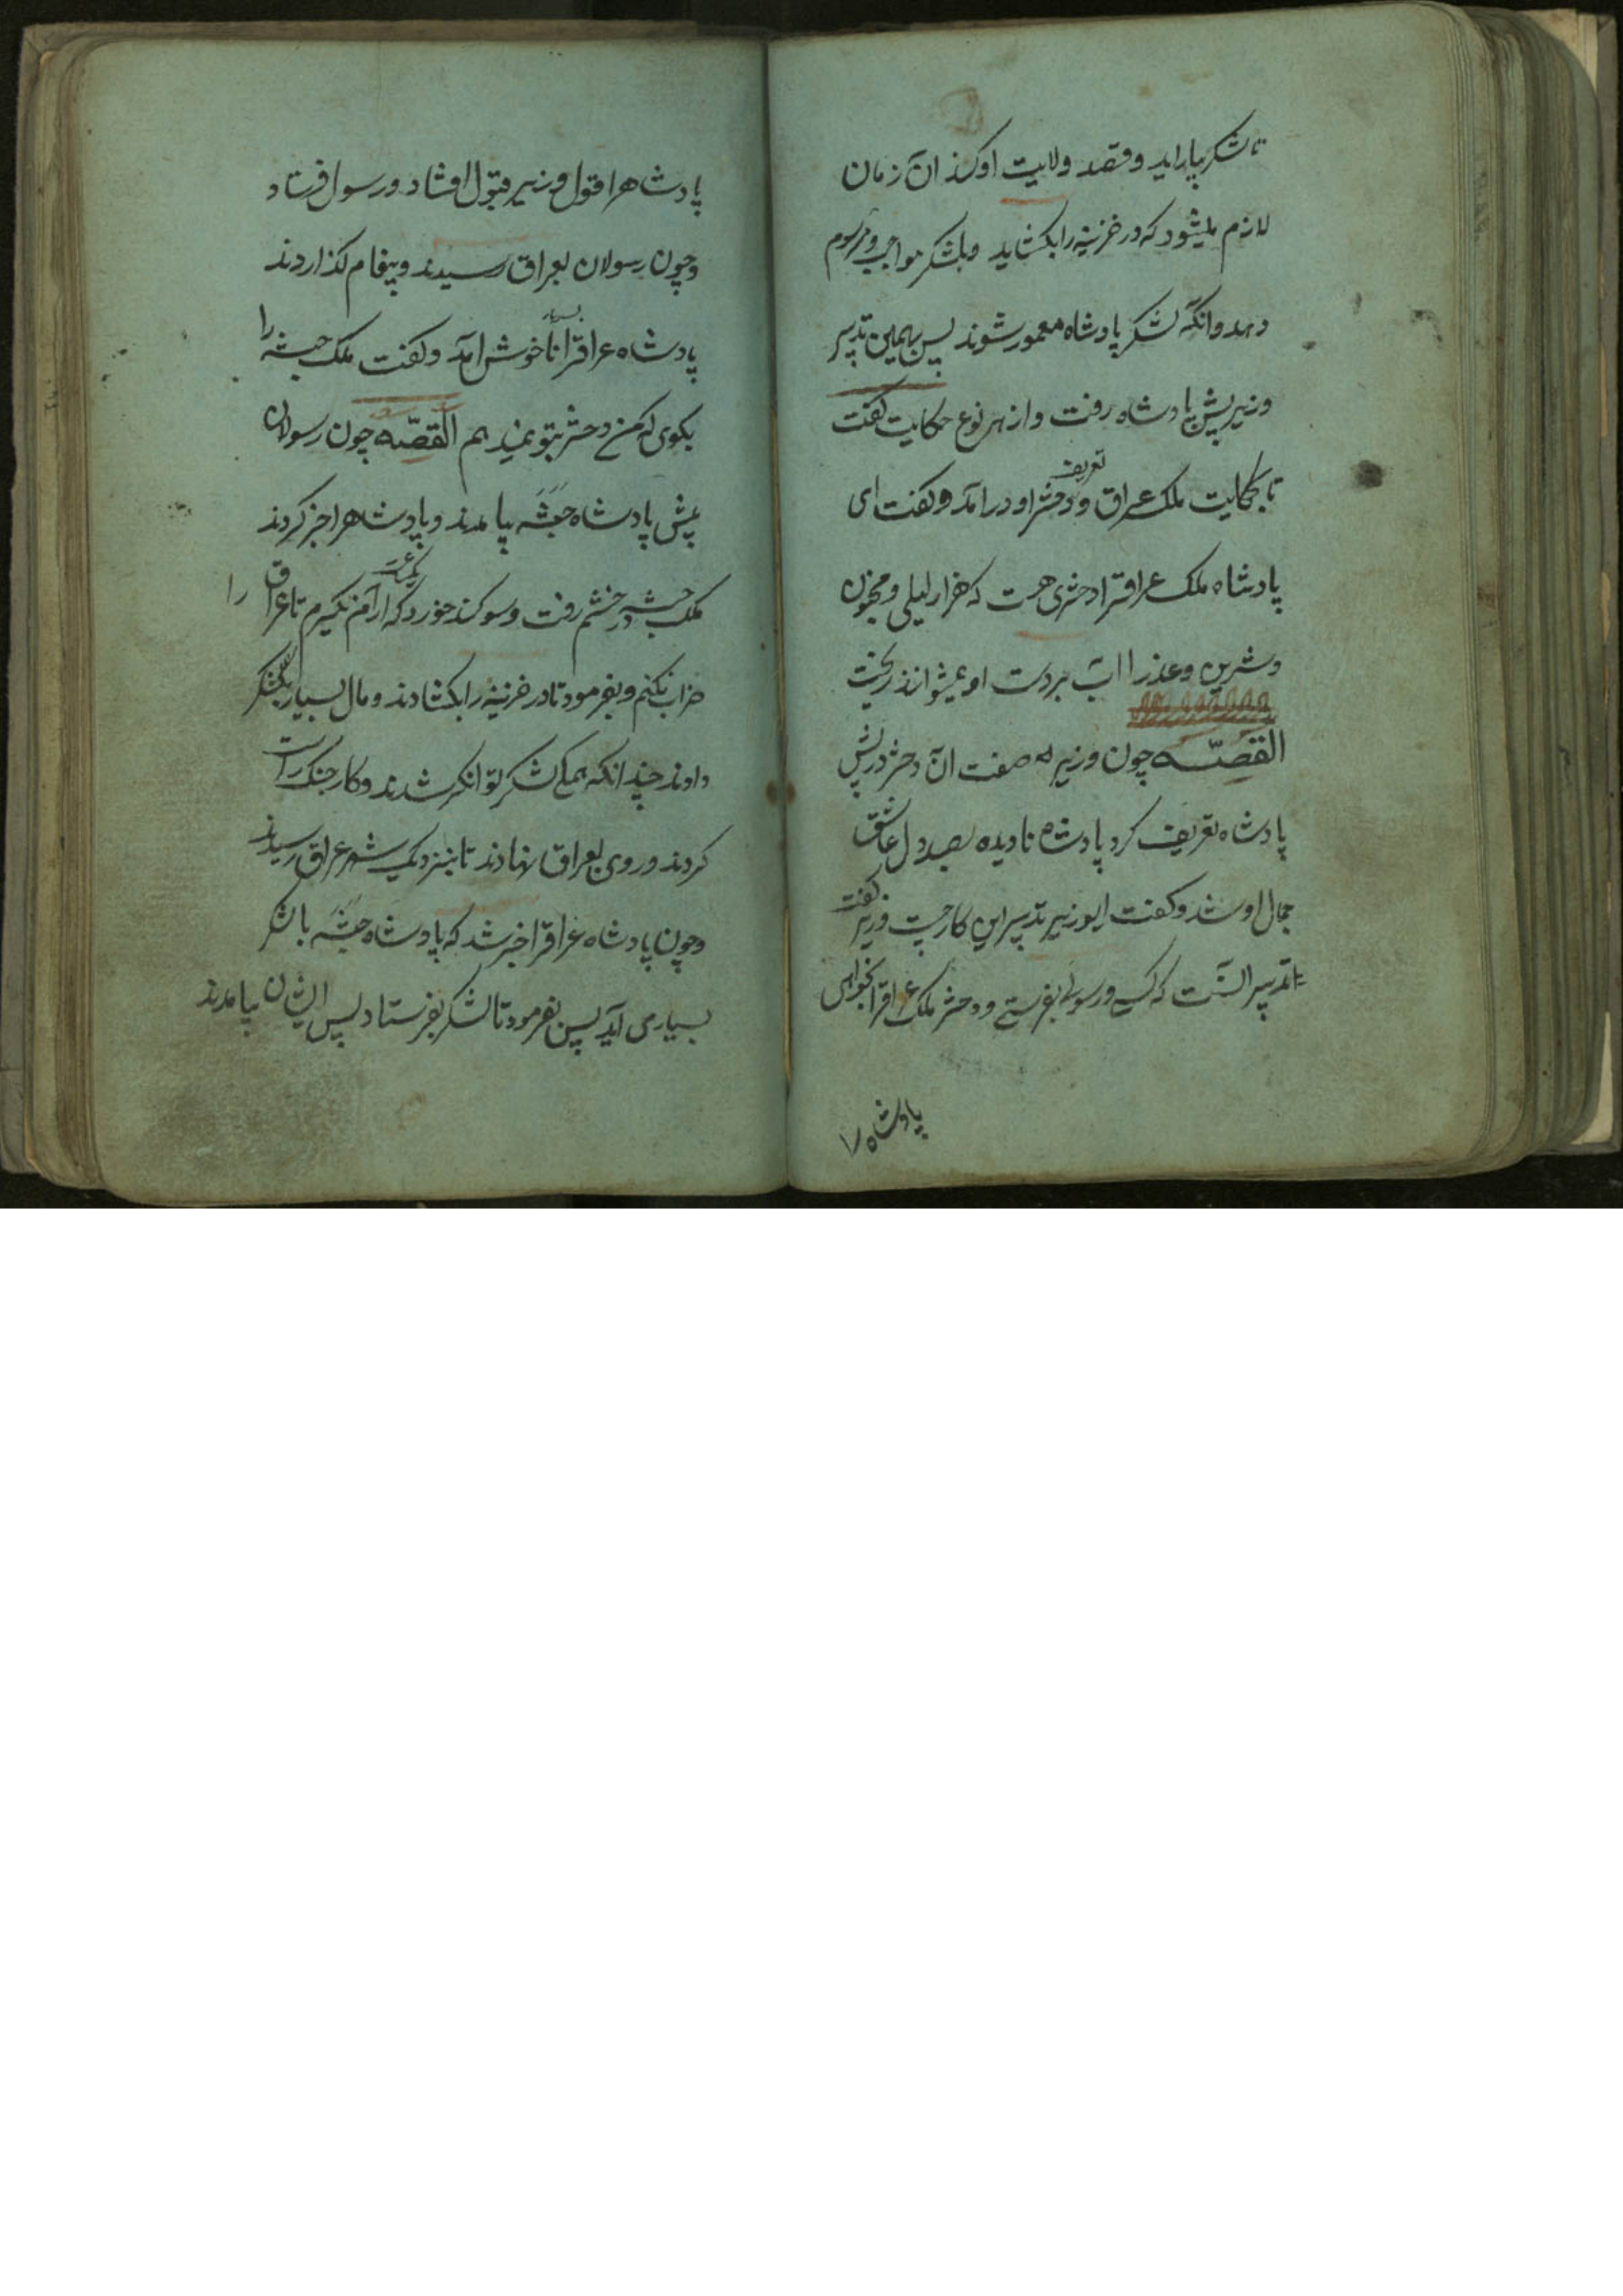 تا لشکر بیاراید و قصد ولایت او کند آن زمان
لازم میشود که در خزینه را بکشاید و بلشکر مواجب و مرسوم
دهد و انکه لشکر پادشاه معمور شوند پس بهمین تدبیر
وزیر پیش پادشاه رفت و از هر نوع حکایت کفت
تا بحکایت ملک عراق و تعریف دختر او در آمد و کفت ای
پادشاه ملک عراقرا دختری هست که هزار لیلی و مجنون
و شیرین و عذرا آب بر دست او نمیتوانند ریخت
القصّه چون وزیر صفت آن دختر در پیش
پادشاه تعریف کرد پادشاه نادیده بصد دل عاشق
جمال او شد و کفت ایوزیر تدبیر این کار چیست وزیر کفت
تدبیر آنست که کسی و رسولی بفرستی و دختر ملک عراقرا بخواهی
پادشاه را
پادشاهرا قول وزیر قبول افتاد و رسول فرستاد
و چون رسولان بعراق رسیدند و پیغام کذاردند
پادشاه عراقرا بسیار ناخوش آمد و کفت ملک حبشه را
بکوی که من دختر بتو نمیدهم القصّه چون رسولان
پیش پادشاه حبشه بیامدند و پادشاهرا خبر کردند
ملک حبشه در خشم رفت و سوکند خورد که آرام نکیرم تا عراق را
خراب نکنم و بفرمود تا در خزینه را بکشادند و مال بسیار بلشکر
دادند چندانکه همه لشکر توانکر شدند و کار جنک راست
کردند و روی بعراق نهادند تا بنزدیک شهر عراق رسیدند
و چون پادشاه عراقرا خبر شد که پادشاه حبشه با لشکر
بسیار می آید پس بفرمود تا لشکر بفرستاد پس ایشان بیامدند